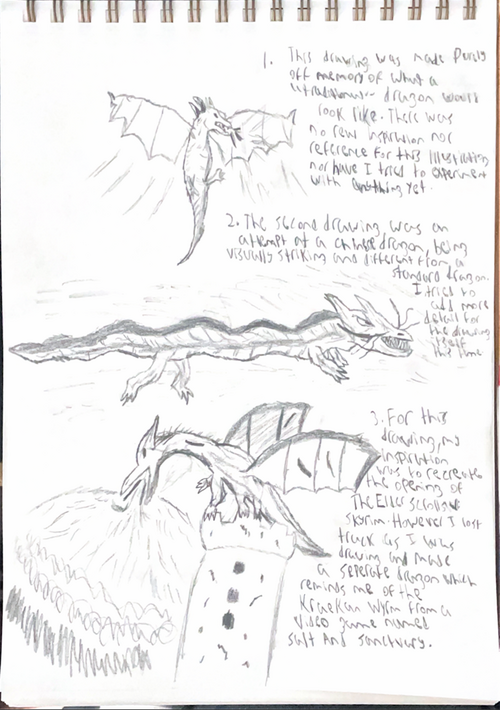 1. This drawing was made Purely
off memory of what a
"traditional" dragon would
look like. There was
no real inspiration nor
reference for this illustration
nor have I tried to experiment
with anything yet.
2. The second drawing was an
attempt at a chinese dragon, being
visually striking and different from a
standard dragon.
I tried to
add more
detail for
the drawing
itself
this time
3. For this
drawing, my
inspiration
was to recreate
the opening of
The Elder Scrolls
Skyrim. However I lost
track as I was
drawing and made
a seperate dragon which
reminds me of the
Kraekan Wyrm from a
video game named
Salt And Sanctuary.